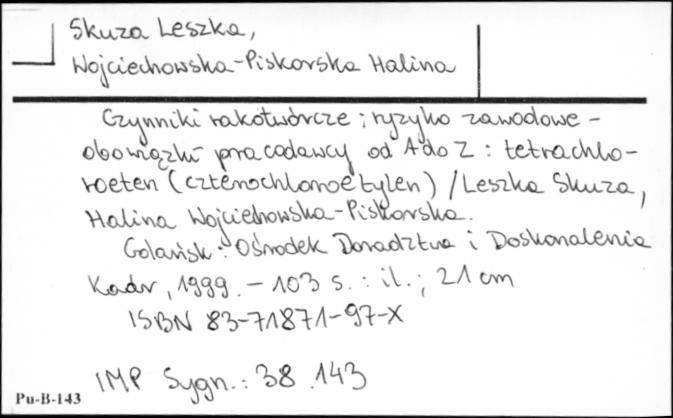 Skuza Leszka,
Wojciechowska-Piskorska Halina
Czynniki rakotwórcze ; ryzyko zawodowe -
obowiązki pracodawcy od A do Z : tetrachlo-
roeten (czterochloroetylen) / Leszka Skuza,
Halina Wojciechowska-Piskorska.
Gdańsk : Ośrodek Doradztwa i Doskonalenia
Kadr, 1999. - 103 s. : il. ; 21 cm
ISBN 83-71871-97-X
IMP Sygn.: 38.143
Pu-B-143